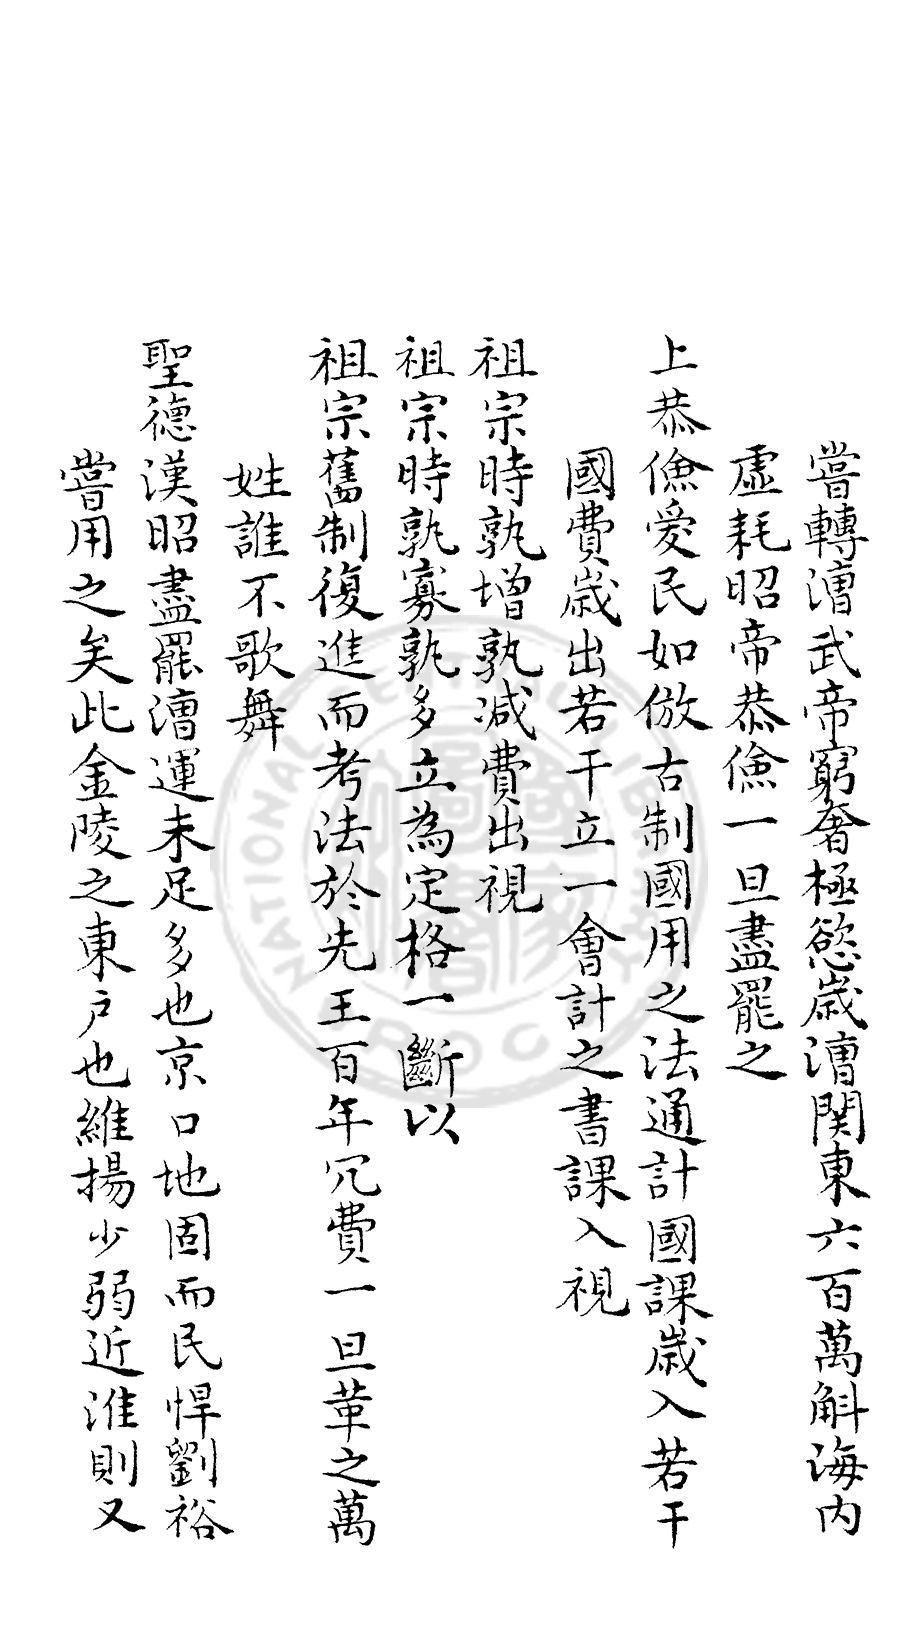 嘗轉漕武帝窮奢極慾歲漕関東六百萬斛海内
虛耗昭帝恭儉一旦盡罷之
上恭儉愛民如倣古制國用之法通計國課歲入若干
國費歲出若干立一會計之書課入視
祖宗時孰增孰减費出視
祖宗時孰寡孰多立為定格一斷以
祖宗舊制復進而考法於先王百年冗費一旦革之萬
姓誰不歌舞
聖德漢昭盡罷漕運未足多也京口地固而民悍劉裕
嘗用之矣此金陵之東户也維揚少弱近淮則又
NATIONAL CENTRAL LIBRARY ROC